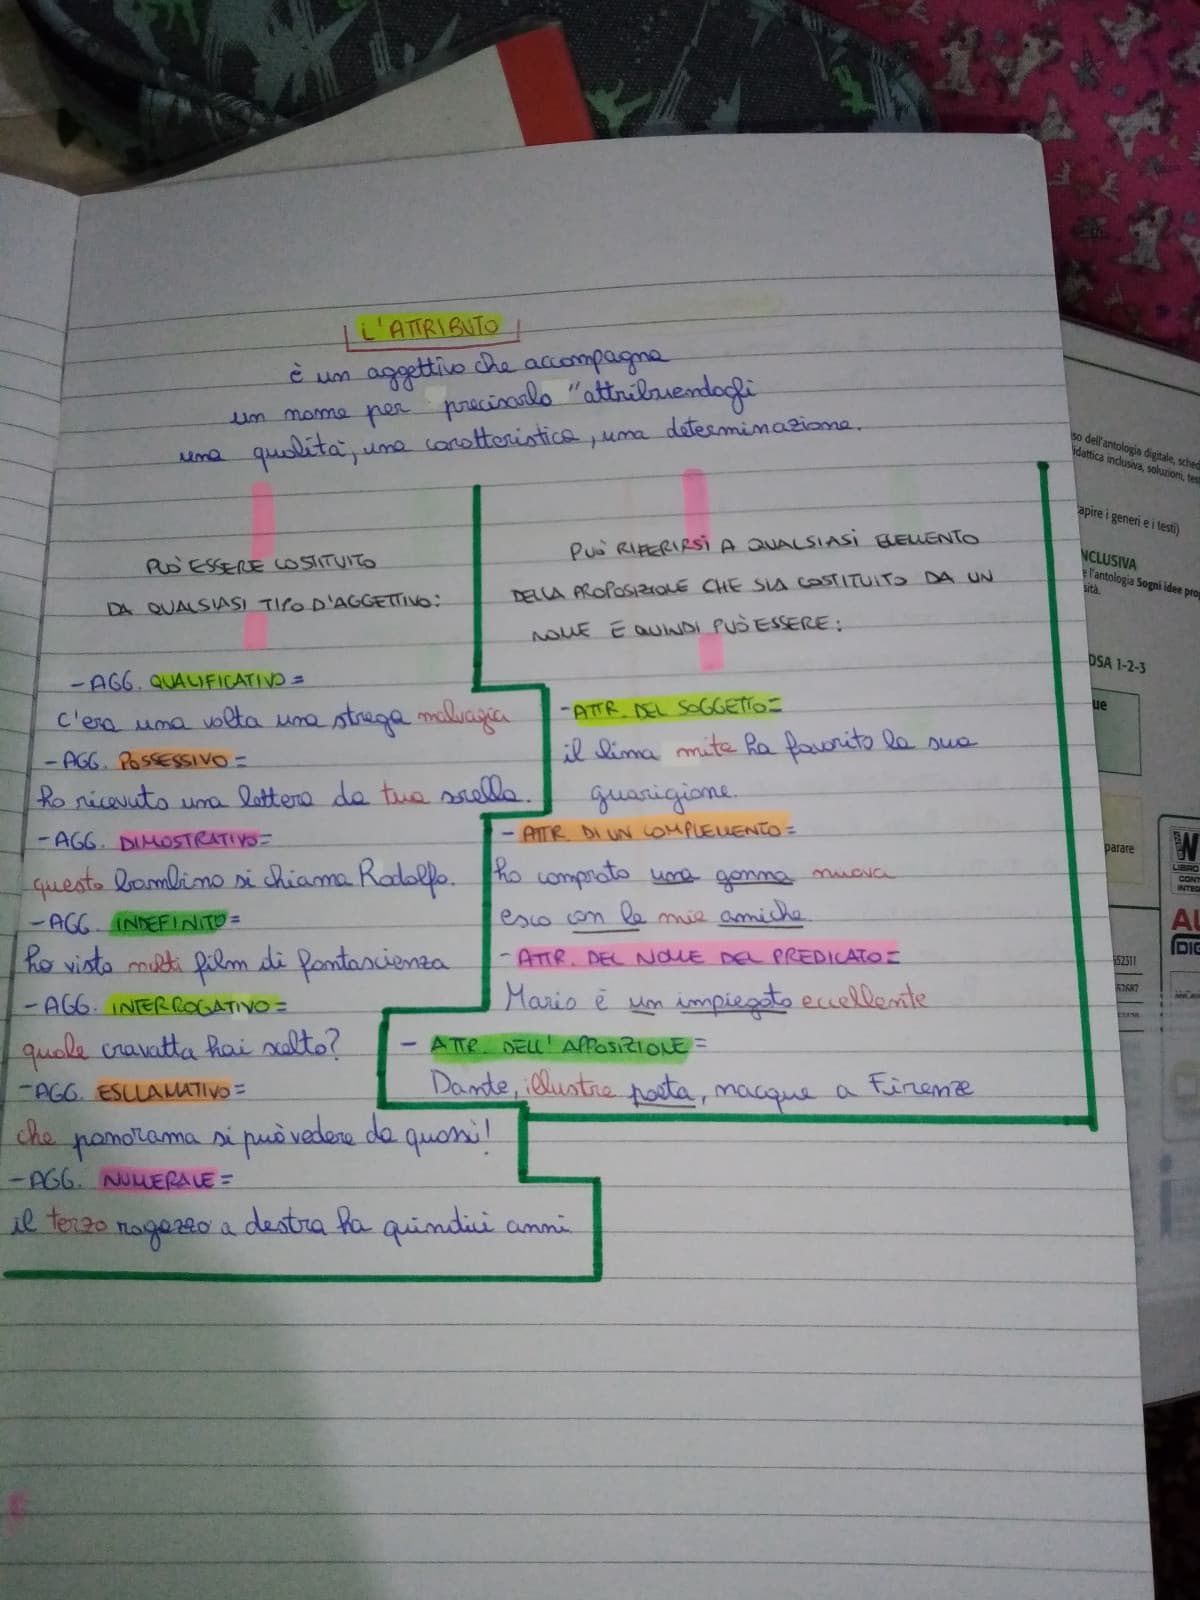 L'ATTRIBUTO
è un aggettivo che accompagna
un nome per precisarlo "attribuendogli
una qualità, una caratteristica, una determinazione.
PUÒ ESSERE COSTITUITO
DA QUALSIASI TIPO D'AGGETTIVO:
- AGG. QUALIFICATIVO =
C'era una volta una strega malvagia
- AGG. POSSESSIVO =
ho ricevuto una lettera da tua sorella.
- AGG. DIMOSTRATIVO =
questo bambino si chiama Rodolfo.
- AGG. INDEFINITO =
ho visto molti film di fantascienza
- AGG. INTERROGATIVO =
quale cravatta hai scelto?
- AGG. ESCLAMATIVO =
che panorama si può vedere da quassi!
- AGG. NUMERALE =
il terzo ragazzo a destra ha quindici anni
PUÒ RIFERIRSI A QUALSIASI ELEMENTO
DELLA PROPOSIZIONE CHE SIA COSTITUITO DA UN
NOME E QUINDI PUÒ ESSERE:
- ATTR. DEL SOGGETTO =
il clima mite ha favorito la sua
guarigione.
- ATTR. DI UN COMPLEMENTO =
ho comprato una gonna nuova
esco con le mie amiche.
- ATTR. DEL NOME DEL PREDICATO =
Mario è un impiegato eccellente
- ATTR. DELL'APPOSIZIONE =
Dante, illustre poeta, nacque a Firenze
so dell'antologia digitale, sched
didattica inclusiva, soluzioni, tes
apire i generi e i testi)
NCLUSIVA
e l'antologia Sogni idee pro
sità.
DSA 1-2-3
ue
parare
W
LIBRO
CONT
INTEG
AU
DIG
52311